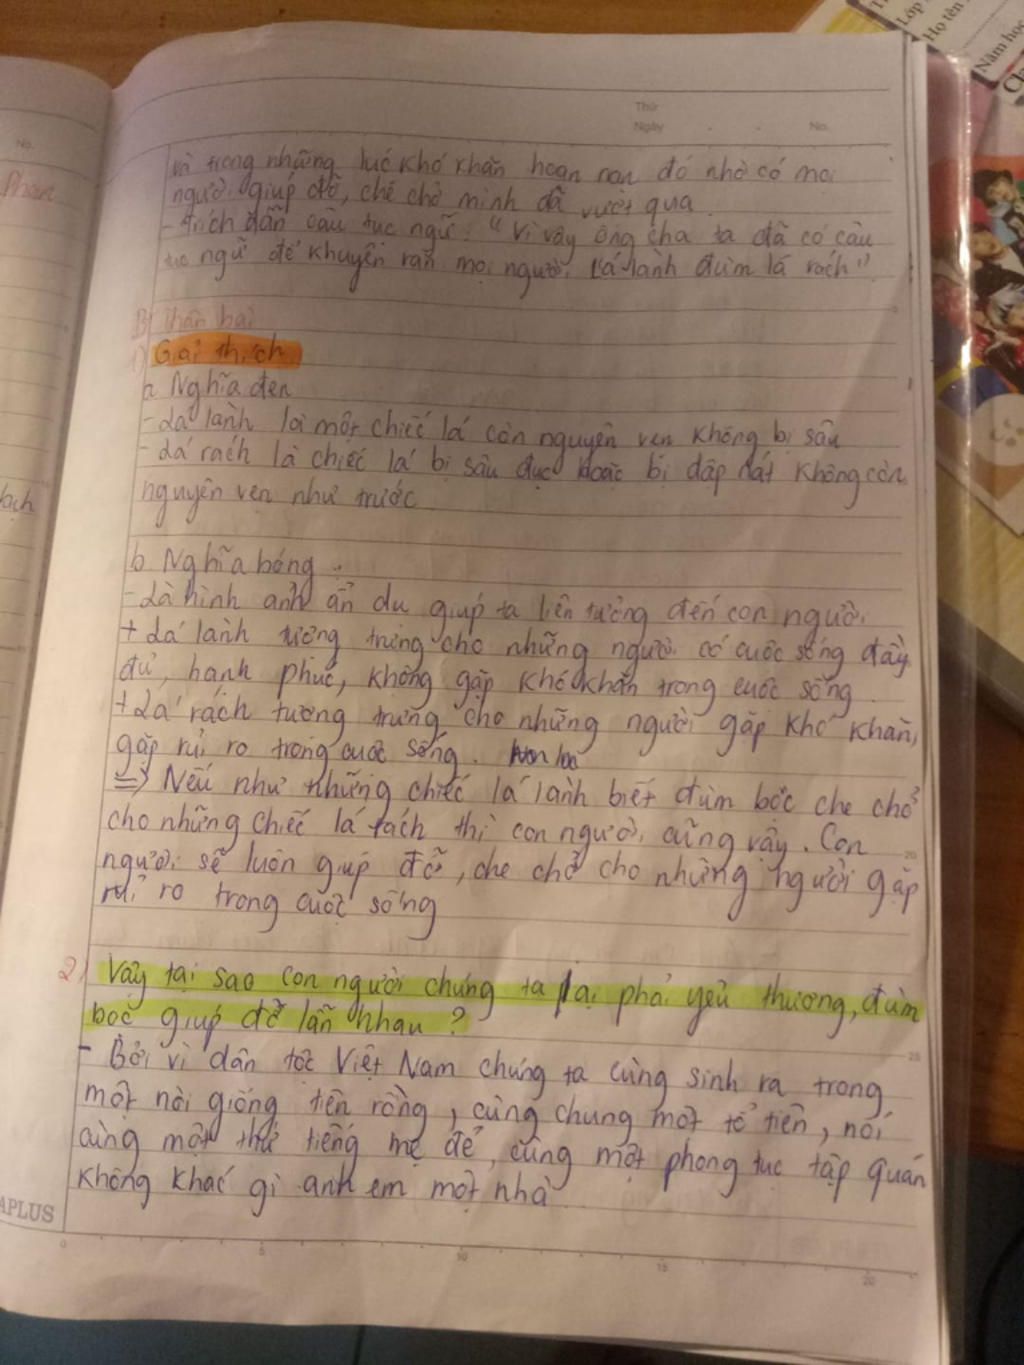 Thứ
Ngày
No.
No.
Lớp
Họ tên
Năm học
và trong những lúc khó khăn hoạn nạn đó nhờ có mọi
người giúp đỡ, che chở mình đã vượt qua
- trích dẫn câu tục ngữ: "Vì vậy ông cha ta đã có câu
tục ngữ để khuyên răn mọi người: Lá lành đùm lá rách"
B) thân bài
1) Giải thích
a. Nghĩa đen
- Lá lành là một chiếc lá còn nguyên vẹn không bị sâu
- Lá rách là chiếc lá bị sâu đục hoặc bị dập nát không còn
nguyên vẹn như trước
b. Nghĩa bóng
- Là hình ảnh ẩn dụ giúp ta liên tưởng đến con người
+ Lá lành tượng trưng cho những người có cuộc sống đầy
đủ, hạnh phúc, không gặp khó khăn trong cuộc sống
+ Lá rách tượng trưng cho những người gặp khó khăn,
gặp rủi ro trong cuộc sống.
=> Nếu như những chiếc lá lành biết đùm bọc che chở
cho những chiếc lá rách thì con người cũng vậy. Con
người sẽ luôn giúp đỡ, che chở cho những người gặp
rủi ro trong cuộc sống
2) Vậy tại sao con người chúng ta lại phải yêu thương, đùm
bọc giúp đỡ lẫn nhau?
- Bởi vì dân tộc Việt Nam chúng ta cùng sinh ra trong
một nòi giống tiên rồng, cùng chung một tổ tiên, nói
cùng một thứ tiếng mẹ đẻ, cùng một phong tục tập quán
không khác gì anh em một nhà
APLUS
0 5 10 15 20